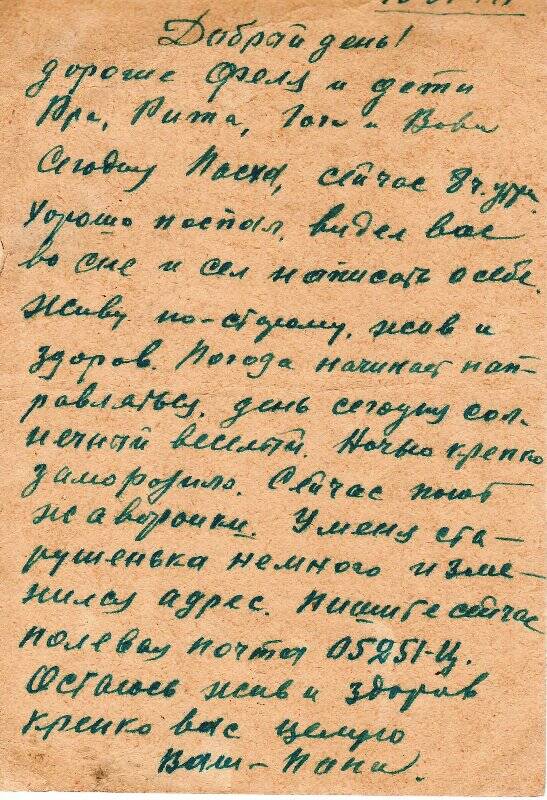 Добрый день!
дорогие Феля и дети
Ира, Рита, Гога и Вова
Сегодня Пасха, сейчас 8 ч. утра.
Хорошо поспал, видел вас
во сне и сел написать о себе.
Живу по-старому, жив и
здоров. Погода начинает нап-
равляться, день сегодня сол-
нечный веселый. Ночью крепко
заморозило. Сейчас поют
жаворонки. У меня ста-
рушенька немного изме-
нился адрес. Пишите сейчас
полевая почта 05251-Ц.
Остаюсь жив и здоров
крепко вас целую
Ваш - Папа.